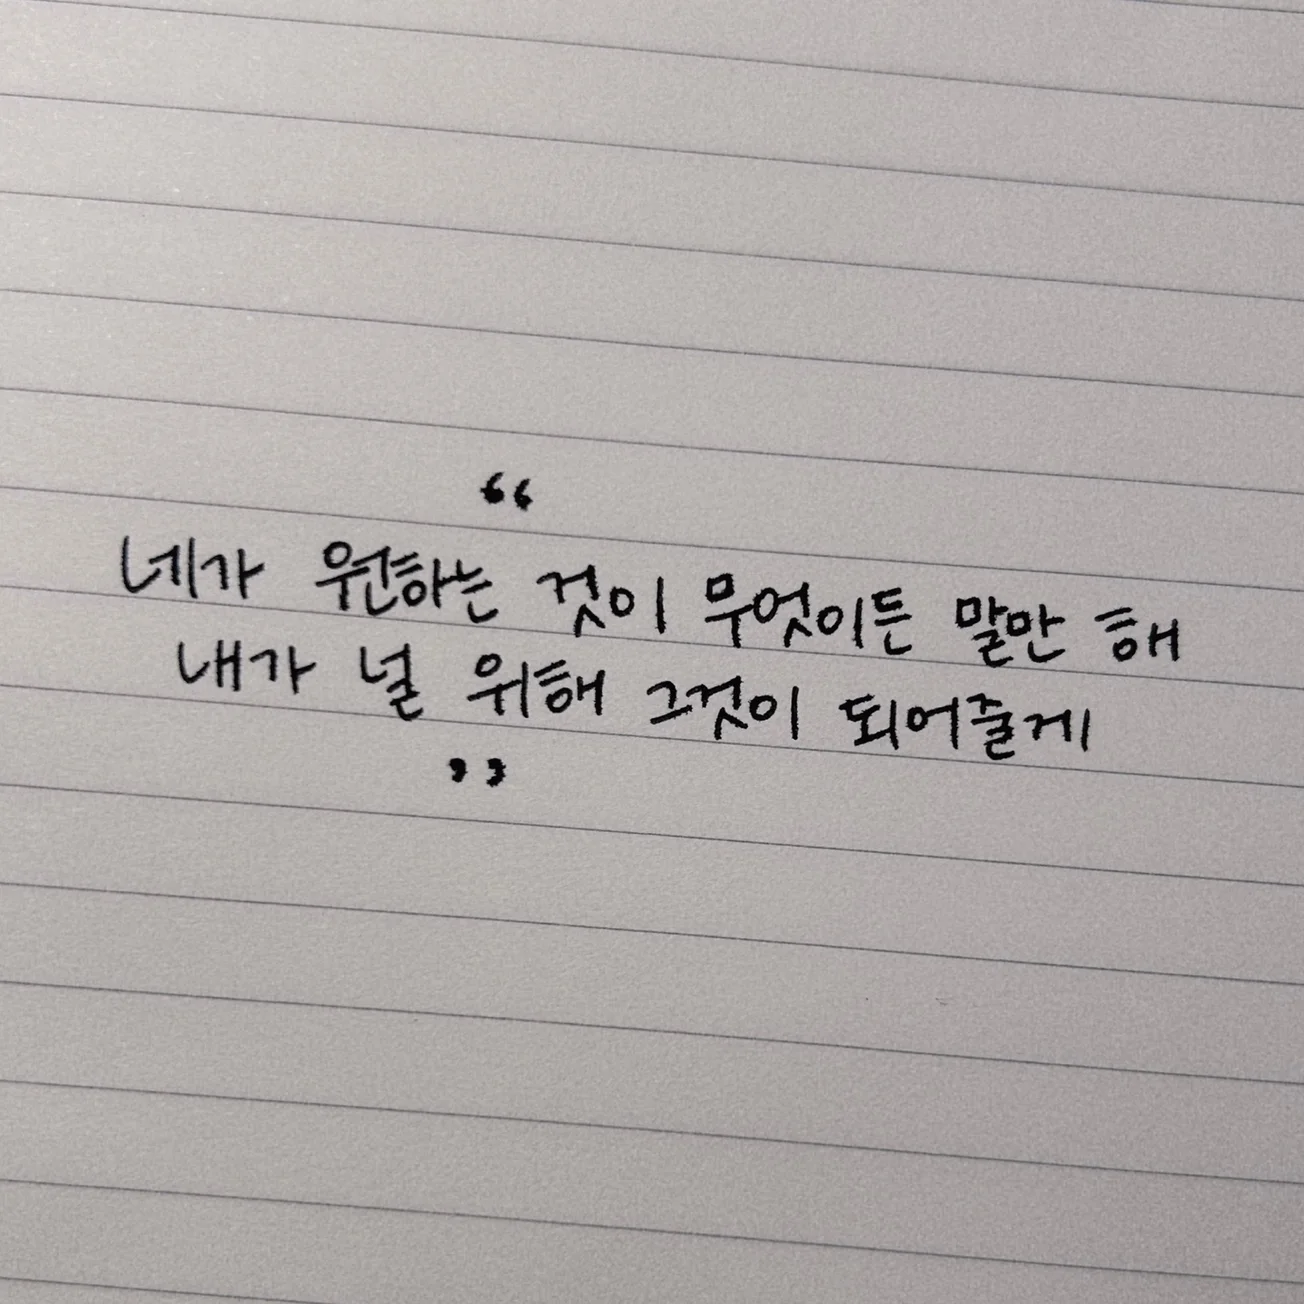 “
네가 원하는 것이 무엇이든 말만 해
내가 널 위해 그것이 되어줄게
”